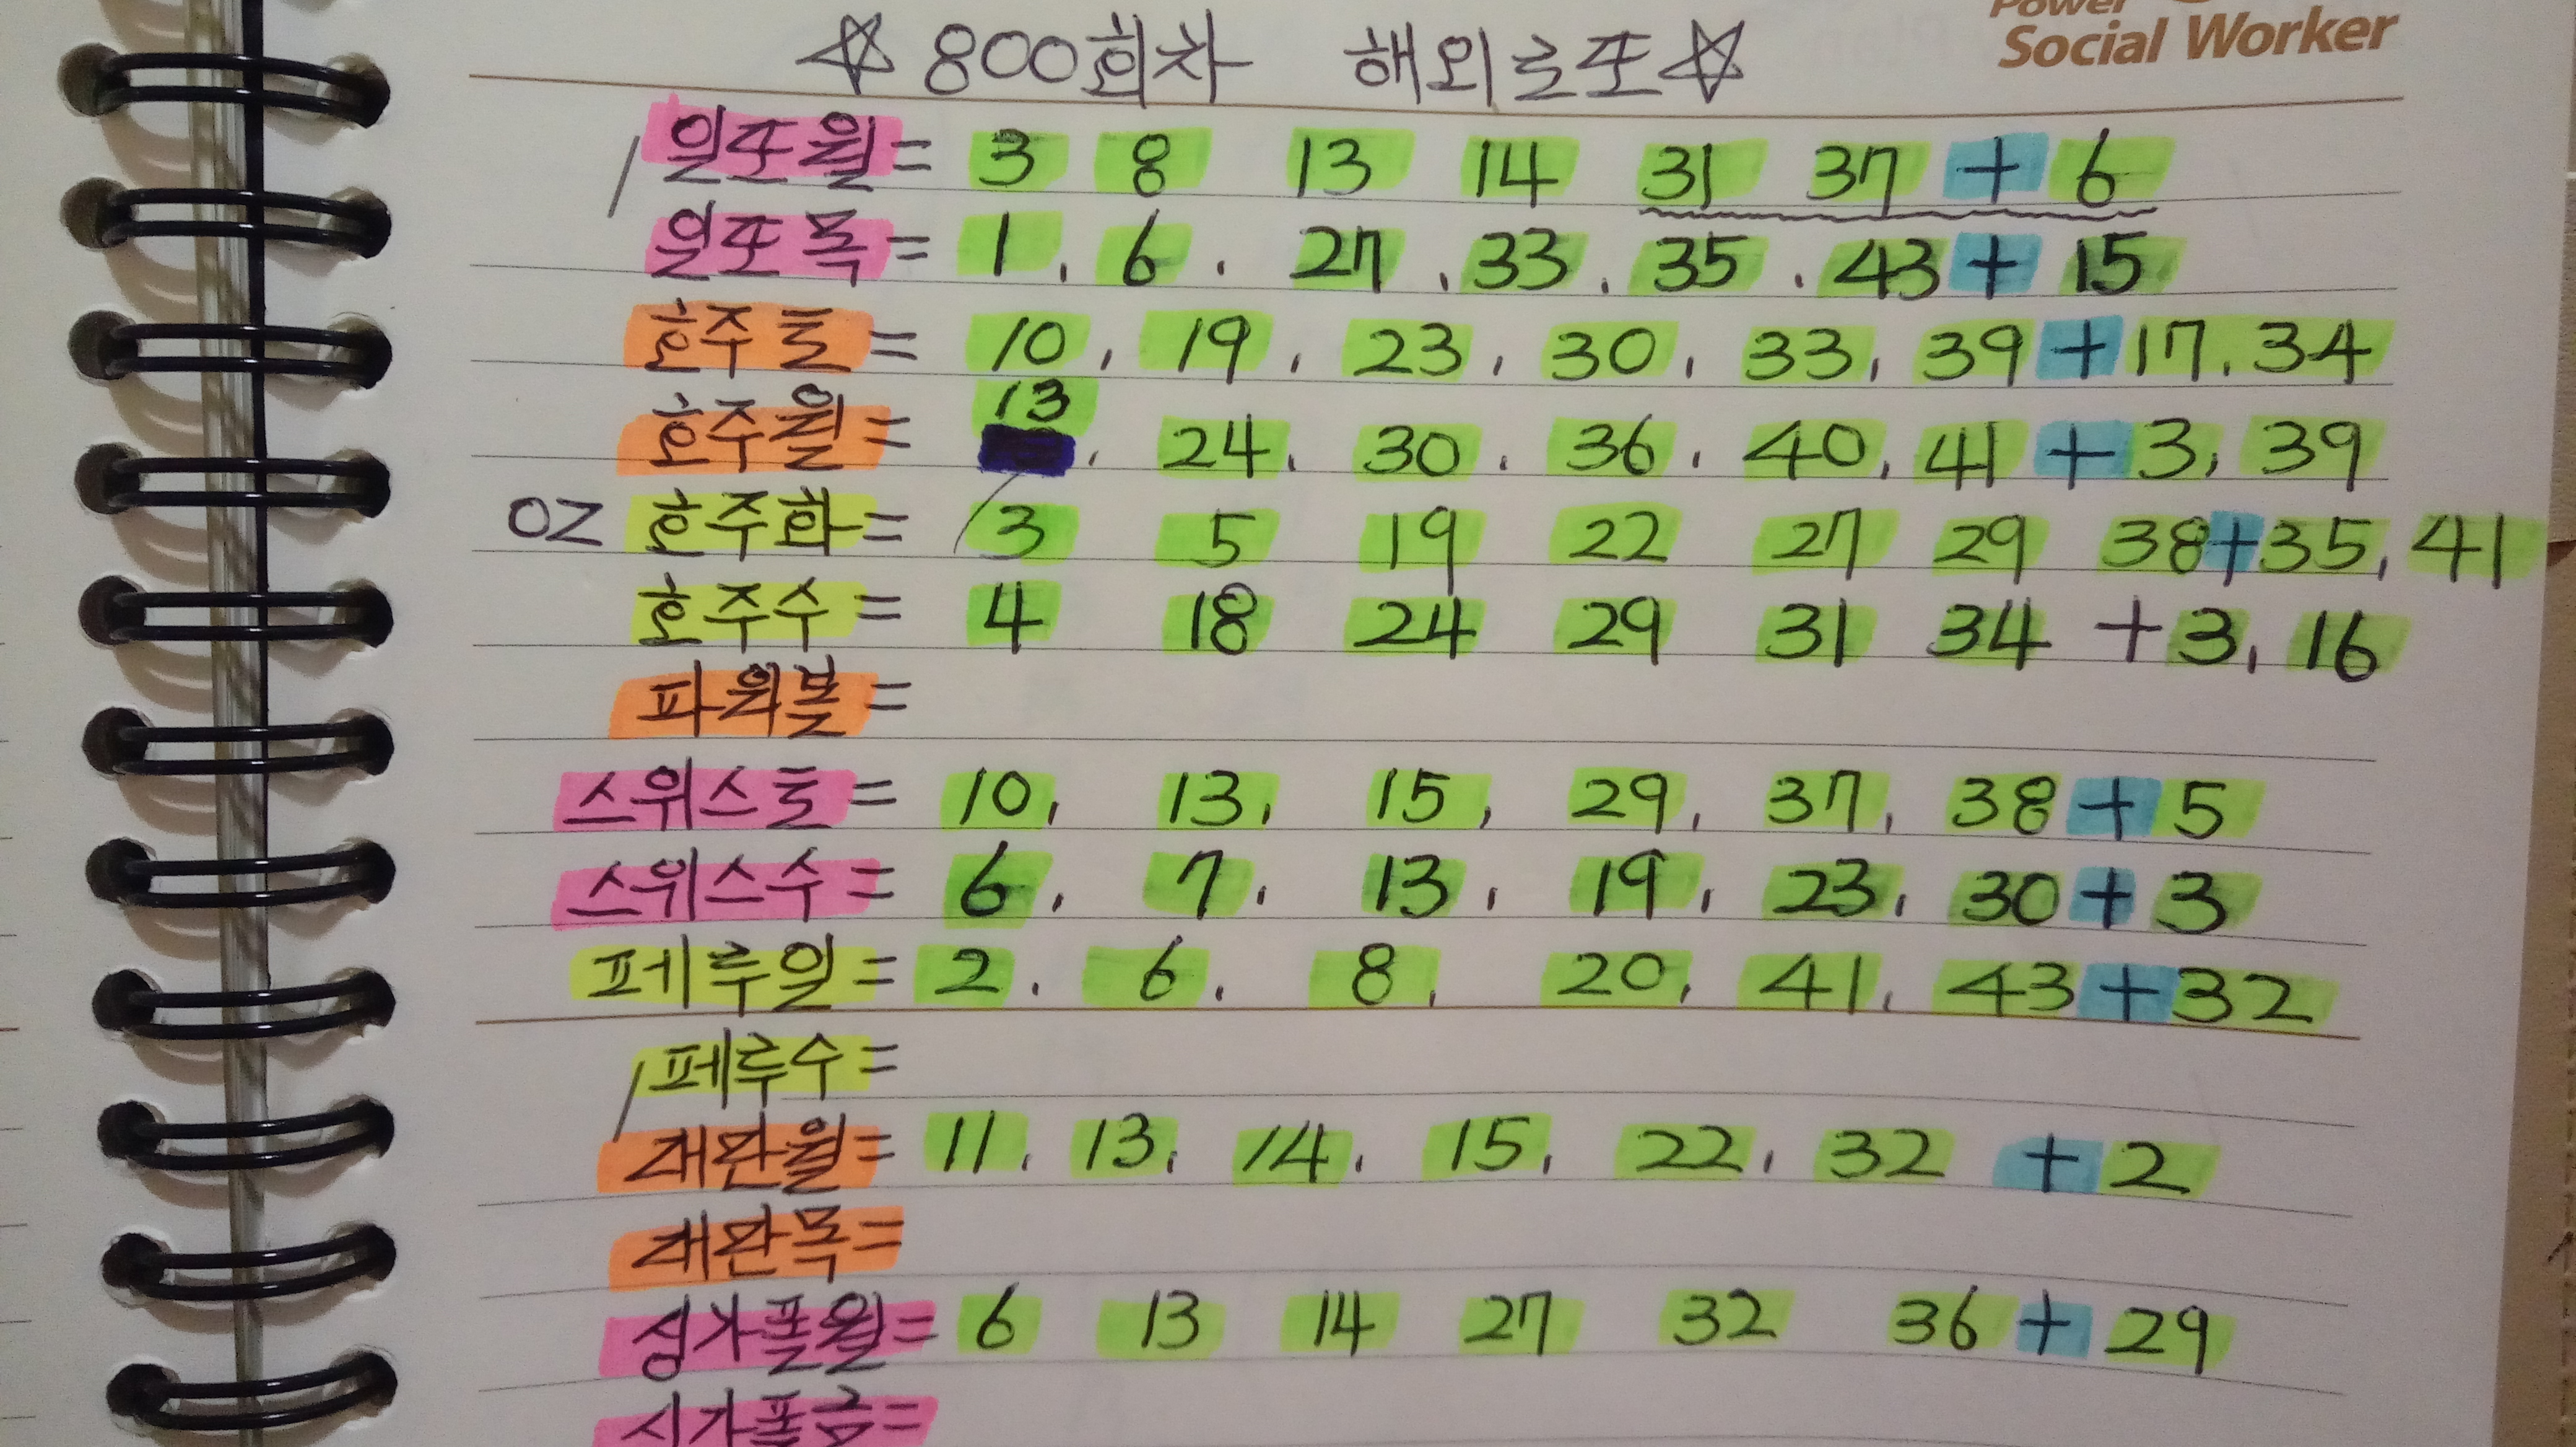 Power
Social Worker
☆ 800회차 해외로또 ☆
일또월= 3 8 13 14 31 37 + 6
일또목= 1, 6, 27, 33, 35, 43 + 15
호주토= 10, 19, 23, 30, 33, 39 + 17, 34
호주월= 13, 24, 30, 36, 40, 41 + 3, 39
OZ 호주화= 3 5 19 22 27 29 38+35, 41
호주수= 4 18 24 29 31 34 + 3, 16
파워볼=
스위스토= 10, 13, 15, 29, 37, 38 + 5
스위스수= 6, 7, 13, 19, 23, 30 + 3
페루일= 2, 6, 8, 20, 41, 43 + 32
페루수=
대만월= 11, 13, 14, 15, 22, 32 + 2
대만목=
싱가폴월= 6 13 14 27 32 36 + 29
싱가폴금=